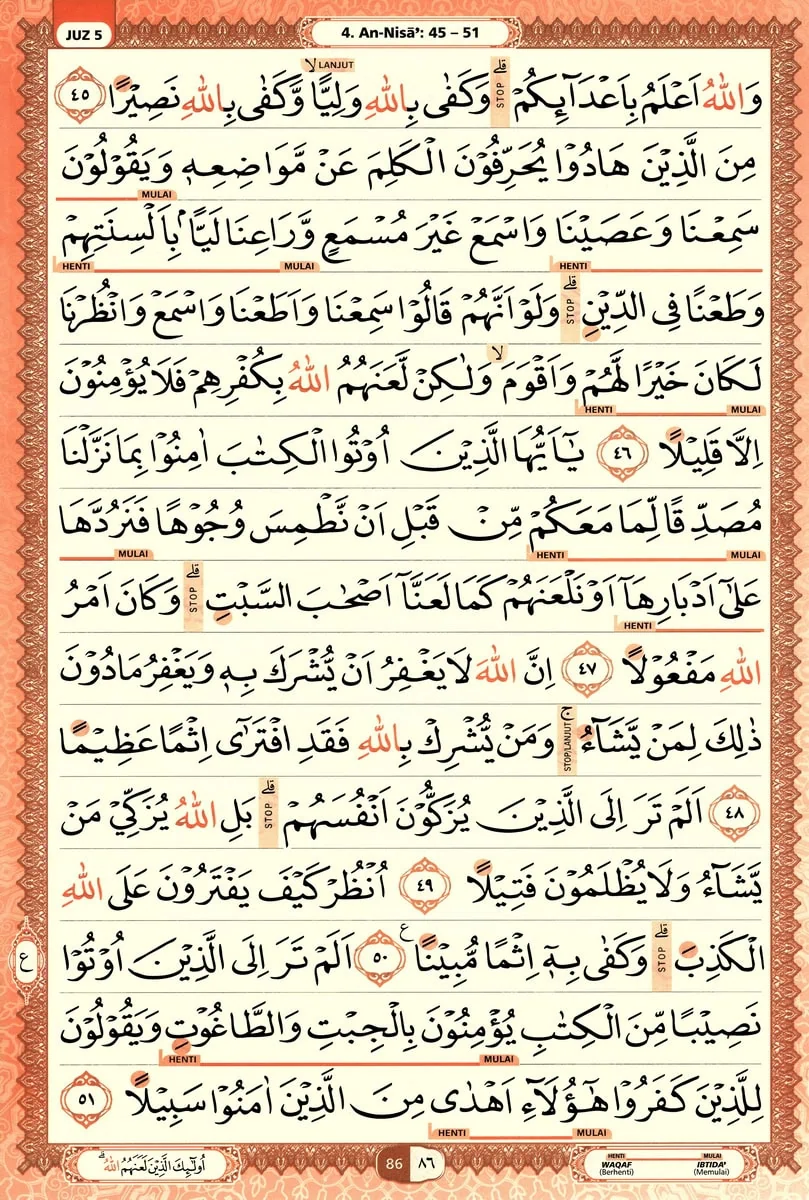 JUZ 5
4. An-Nisā': 45 – 51
LANJUT
وَاللّٰهُ اَعْلَمُ بِاَعْدَاۤىِٕكُمْ ۗوَكَفٰى بِاللّٰهِ وَلِيًّا ۙوَّكَفٰى بِاللّٰهِ نَصِيْرًا ٤٥
STOP
مِنَ الَّذِيْنَ هَادُوْا يُحَرِّفُوْنَ الْكَلِمَ عَنْ مَّوَاضِعِهٖ وَيَقُوْلُوْنَ
MULAI
سَمِعْنَا وَعَصَيْنَا وَاسْمَعْ غَيْرَ مُسْمَعٍ وَّرَاعِنَا لَيًّاۢ بِاَلْسِنَتِهِمْ
HENTI MULAI HENTI
وَطَعْنًا فِى الدِّيْنِۗ وَلَوْ اَنَّهُمْ قَالُوْا سَمِعْنَا وَاَطَعْنَا وَاسْمَعْ وَانْظُرْنَا
STOP
لَكَانَ خَيْرًا لَّهُمْ وَاَقْوَمَۙ وَلٰكِنْ لَّعَنَهُمُ اللّٰهُ بِكُفْرِهِمْ فَلَا يُؤْمِنُوْنَ
MULAI HENTI
اِلَّا قَلِيْلًا ٤٦ يٰٓاَيُّهَا الَّذِيْنَ اُوْتُوا الْكِتٰبَ اٰمِنُوْا بِمَا نَزَّلْنَا
مُصَدِّقًا لِّمَا مَعَكُمْ مِّنْ قَبْلِ اَنْ نَّطْمِسَ وُجُوْهًا فَنَرُدَّهَا
MULAI HENTI MULAI
عَلٰٓى اَدْبَارِهَآ اَوْ نَلْعَنَهُمْ كَمَا لَعَنَّآ اَصْحٰبَ السَّبْتِ ۗ وَكَانَ اَمْرُ
HENTI STOP
اللّٰهِ مَفْعُوْلًا ٤٧ اِنَّ اللّٰهَ لَا يَغْفِرُ اَنْ يُّشْرَكَ بِهٖ وَيَغْفِرُ مَا دُوْنَ
ذٰلِكَ لِمَنْ يَّشَاۤءُ ۚ وَمَنْ يُّشْرِكْ بِاللّٰهِ فَقَدِ افْتَرٰٓى اِثْمًا عَظِيْمًا
STOP/LANJUT
٤٨ اَلَمْ تَرَ اِلَى الَّذِيْنَ يُزَكُّوْنَ اَنْفُسَهُمْ ۗ بَلِ اللّٰهُ يُزَكِّيْ مَنْ
STOP
يَّشَاۤءُ وَلَا يُظْلَمُوْنَ فَتِيْلًا ٤٩ اُنْظُرْ كَيْفَ يَفْتَرُوْنَ عَلَى اللّٰهِ
الْكَذِبَۗ وَكَفٰى بِهٖٓ اِثْمًا مُّبِيْنًا ࣖ ٥٠ اَلَمْ تَرَ اِلَى الَّذِيْنَ اُوْتُوْا
STOP
ع
نَصِيْبًا مِّنَ الْكِتٰبِ يُؤْمِنُوْنَ بِالْجِبْتِ وَالطَّاغُوْتِ وَيَقُوْلُوْنَ
MULAI HENTI
لِلَّذِيْنَ كَفَرُوْا هٰٓؤُلَاۤءِ اَهْدٰى مِنَ الَّذِيْنَ اٰمَنُوْا سَبِيْلًا ٥١
MULAI HENTI
اُولٰۤىِٕكَ الَّذِيْنَ لَعَنَهُمُ اللّٰهُ ۗ
86 ٨٦
HENTI MULAI
WAQAF IBTIDA'
(Berhenti) (Memulai)